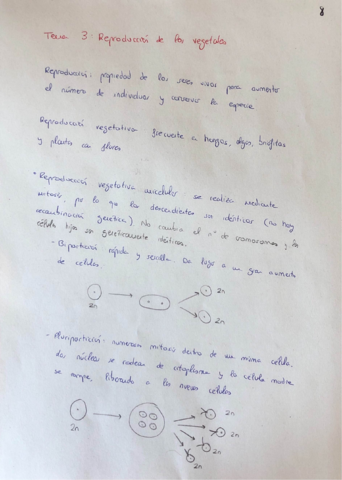 8
Tema 3: Reproducción de los vegetales
Reproducción: propiedad de los seres vivos para aumentar
el número de individuos y conservar la especie.
Reproducción vegetativa frecuente a hongos, algas, briofitas
y plantas con flores
* Reproducción vegetativa unicelular: se realiza mediante
mitosis, por lo que los descendientes son idénticos (no hay
recombinación genética). No cambia el nº de cromosomas y las
células hijas son genéticamente idénticas.
- Bipartición: rápida y sencilla. Da lugar a un gran aumento
de células
2n
2n
2n
- Pluripartición: numerosas mitosis dentro de una misma célula,
los núcleos se rodean de citoplasma y la célula madre
se rompe, liberando a las nuevas células
2n
2n
2n
2n
2n